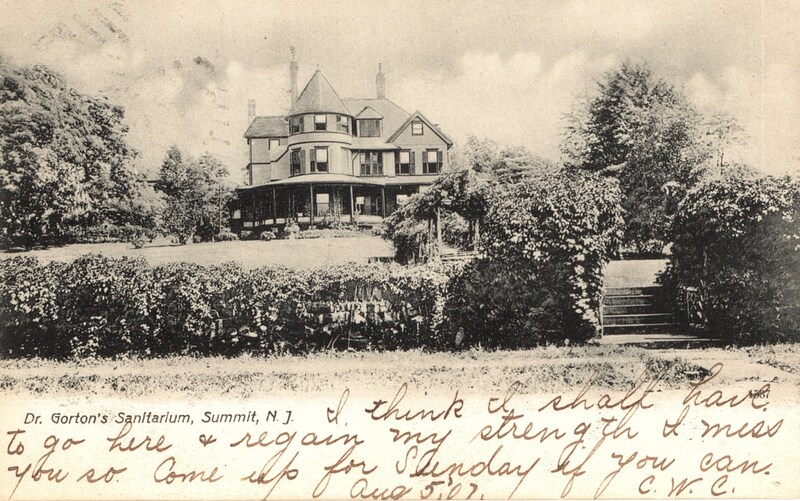 Dr. Gorton's Sanitarium, Summit, N. J.
I think I shall have
to go here & regain my strength I miss
you so. Come up for Sunday if you can.
Aug 5, 07. C. W. C.